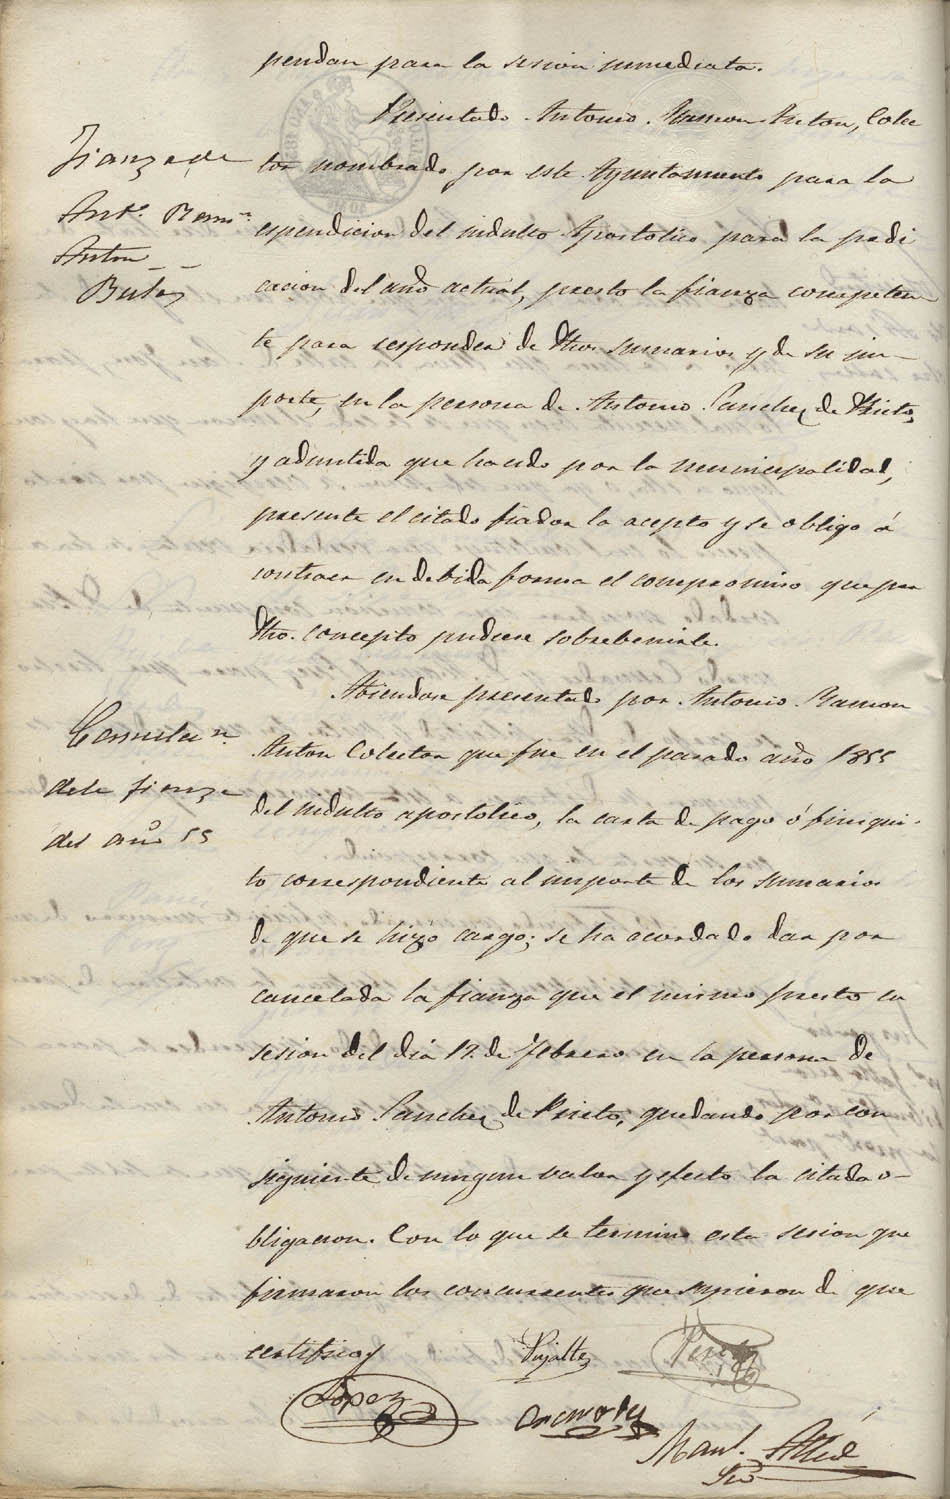 pendan para la sesion inmediata.
Fianza de
Ant.º Ramn.
Anton
Bulas
Presentado Antonio Ramon Anton, Colec
tor nombrado por este Ayuntamiento para la
espendicion del indulto Apostolico para la predi
cacion del año actual, presto la fianza competen
te para responder de dhos sumarios y de su im-
porte, en la persona de Antonio Sanchez de Prieto,
y admitida que ha sido por la municipalidad,
presente el citado fiador la acepto y se obligo á
contraer en debida forma el compromiso que por
dho. concepto pudiese sobrebenirle.
Cancelacn.
dela fianza
del año 55
Abiendose presentado por Antonio Ramon
Anton Colector que fue en el pasado año 1855
del indulto apostolico, la carta de pago ó finiqui-
to correspondiente al importe de los sumarios
de que se hizo cargo; se ha acordado dar por
cancelada la fianza que el mismo presto en
sesion del dia 12 de febrero en la persona de
Antonio Sanchez de Prieto, quedando por con
siguiente de ningun valor y efecto la citada o-
bligacion. Con lo que se termino esta sesion que
firmaron los concurrentes que supieron de que
certifico
Pujalte
Perez
Lopez
Manl.
Srio